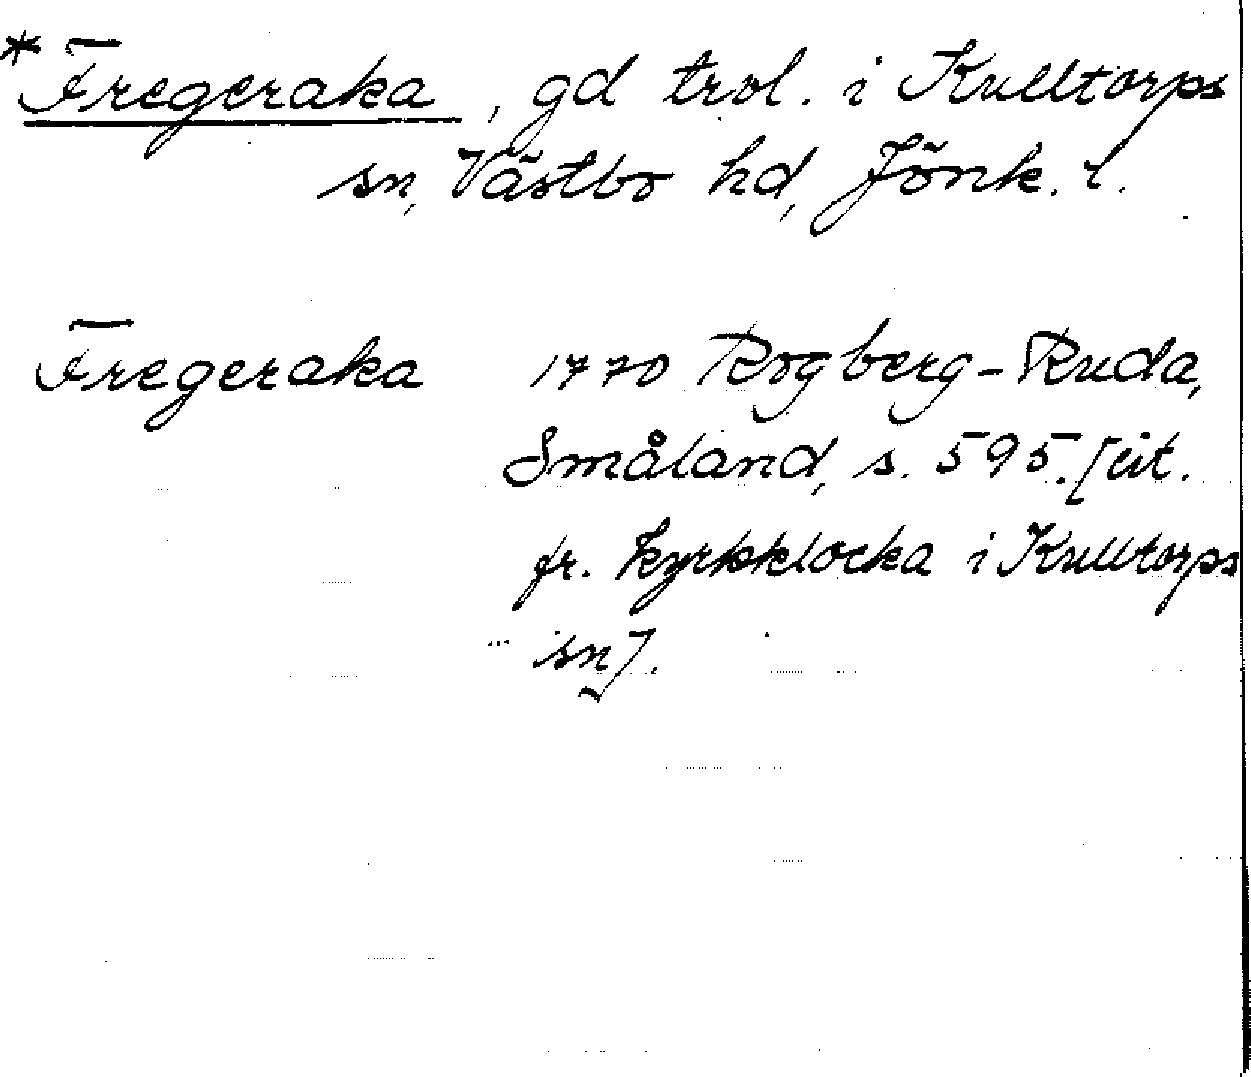 *Fregeraka, gd trol. i Kulltorps
sn, Västbo hd, Jönk. l.
Fregeraka 1770 Rogberg-Ruda,
Småland, s. 595. [cit.
fr. kyrkklocka i Kulltorps
sn].